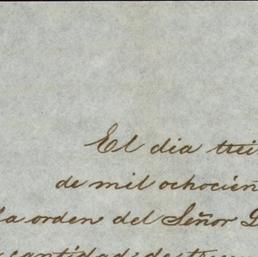 El dia trei
de mil ochocien
la orden del Señor D
cantidad de tres